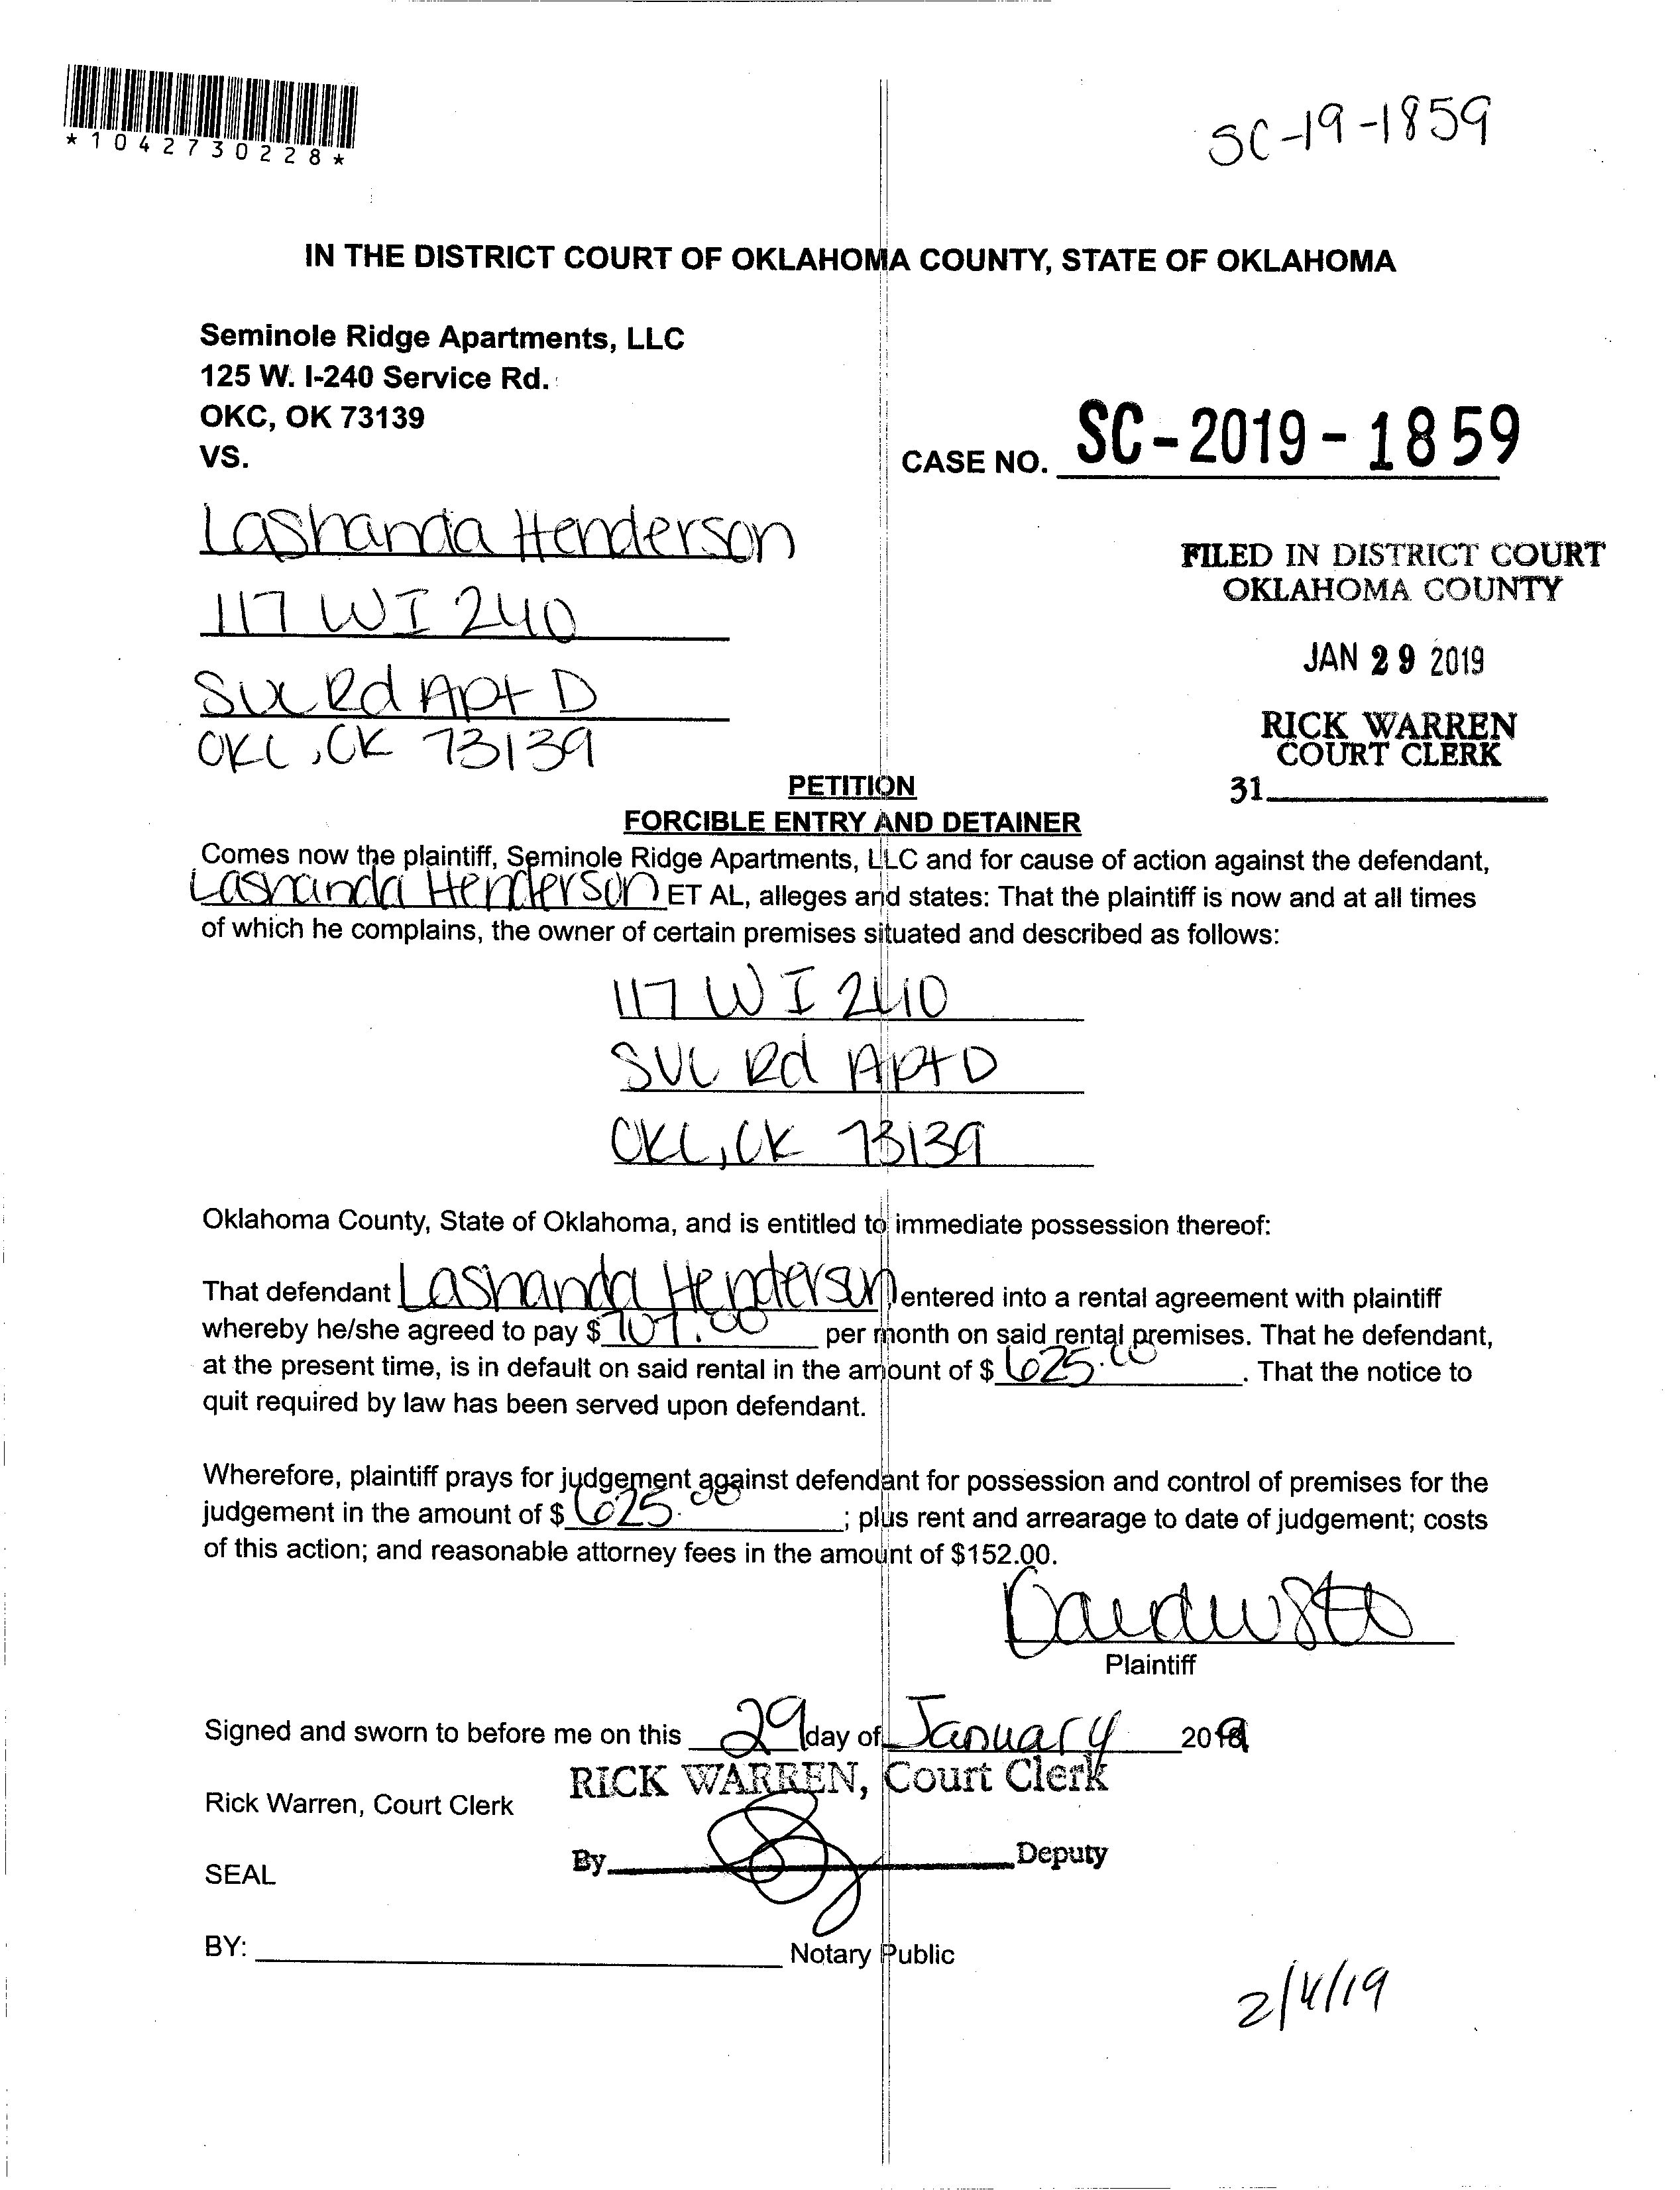 *1042730228*
SC-19-1859
IN THE DISTRICT COURT OF OKLAHOMA COUNTY, STATE OF OKLAHOMA
Seminole Ridge Apartments, LLC
125 W. I-240 Service Rd.
OKC, OK 73139
VS.
CASE NO. SC-2019-1859
Lashanda Henderson
117 W I 240
Svc Rd Apt D
OKC, OK 73139
FILED IN DISTRICT COURT
OKLAHOMA COUNTY
JAN 29 2019
RICK WARREN
COURT CLERK
31
PETITION
FORCIBLE ENTRY AND DETAINER
Comes now the plaintiff, Seminole Ridge Apartments, LLC and for cause of action against the defendant,
Lashanda Henderson ET AL, alleges and states: That the plaintiff is now and at all times
of which he complains, the owner of certain premises situated and described as follows:
117 W I 240
SVC Rd Apt D
OKC, OK 73139
Oklahoma County, State of Oklahoma, and is entitled to immediate possession thereof:
That defendant Lashanda Henderson entered into a rental agreement with plaintiff
whereby he/she agreed to pay $ .00 per month on said rental premises. That he defendant,
at the present time, is in default on said rental in the amount of $ 625.00. That the notice to
quit required by law has been served upon defendant.
Wherefore, plaintiff prays for judgement against defendant for possession and control of premises for the
judgement in the amount of $ 625.00; plus rent and arrearage to date of judgement; costs
of this action; and reasonable attorney fees in the amount of $152.00.
Plaintiff
Signed and sworn to before me on this 29 day of January 2019
RICK WARREN, Court Clerk
Rick Warren, Court Clerk
By Deputy
SEAL
BY: Notary Public
2/4/19